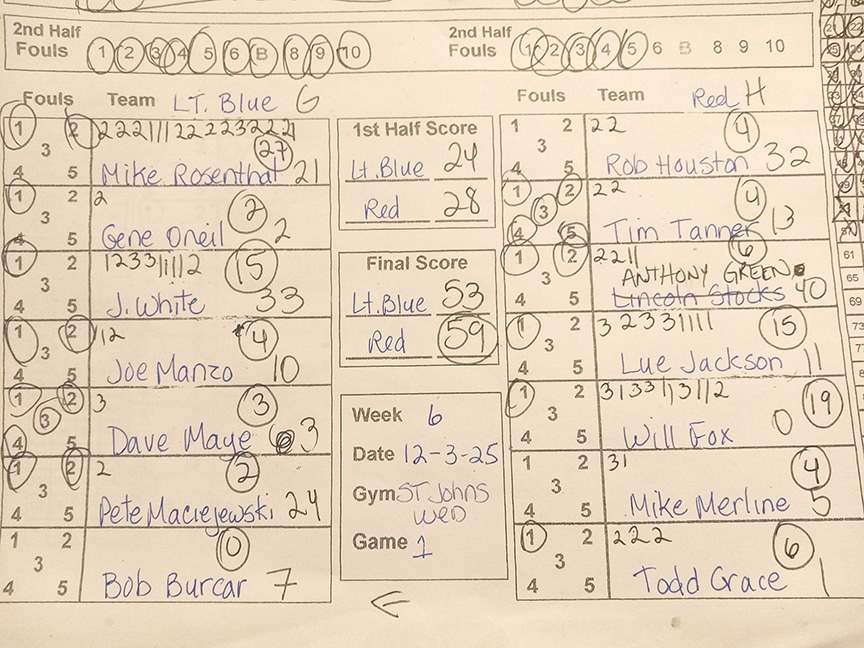 2nd Half Fouls 1 2 3 4 5 6 B 8 9 10
2nd Half Fouls 1 2 3 4 5 6 B 8 9 10
Fouls Team LT. Blue G
1 2 3 4 5
27
Mike Rosenthal 21
1 2 3 4 5 2
2
Gene Oneil 2
1 2 3 4 5 1233111112
15
J. White 33
1 2 3 4 5 112
4
Joe Manzo 10
1 2 3 4 5 3
3
Dave Maye 3
1 2 3 4 5 2
2
Pete Maciejewski 24
1 2 3 4 5
0
Bob Burcar 7
1st Half Score
Lt.Blue 24
Red 28
Final Score
Lt.Blue 53
Red 59
Week 6
Date 12-3-25
Gym ST Johns
Wed
Game 1
Fouls Team Red H
1 2 3 4 5 22
4
Rob Houston 32
1 2 3 4 5 22
4
Tim Tanner 13
1 2 3 4 5 2211
6
ANTHONY GREENE
Lincoln Stocks 40
1 2 3 4 5 3 2 3 3 1 1 1 1
15
Lue Jackson 11
1 2 3 4 5 3133131112
19
Will Fox 0
1 2 3 4 5 31
4
Mike Merline 5
1 2 3 4 5 222
6
Todd Grace 1
61
65
69
73
77